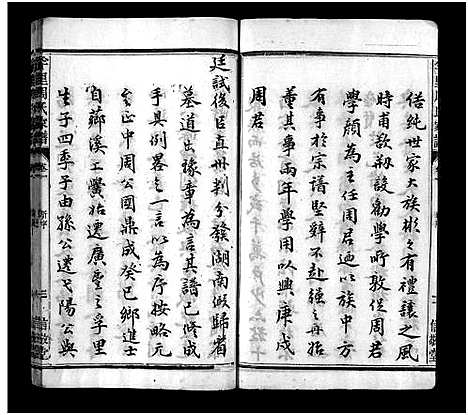 偌純世家大族彬々有禮讓之風
時甫歌荊設勸學所敦促周君
學顏為主任周君廼以族中方
有事於宗譜堅辭不赴強之再始
董其事兩年學用以興庚戌
周君
廷試後臣直州判分發湖南假歸省
墓道出豫章為言其譜已修成
手具例畧乞一言以為序按略元
至正中周公國鼎成癸巳鄉進士
自薌溪工黌岾遷廣豐之孚里
生子四季子由孫公遷弋陽公與